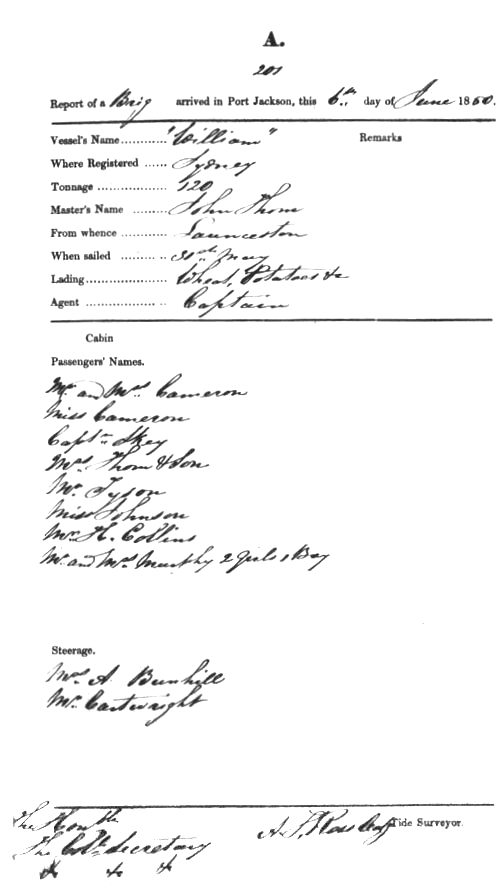 A.
201
Report of a Brig arrived in Port Jackson, this 6th day of June 1850.
Vessel's Name............ "William" Remarks
Where Registered ...... Sydney
Tonnage .................. 120
Master's Name ......... John Thom
From whence ............ Launceston
When sailed ............ 31st May
Lading..................... Wheat, Potatoes &c
Agent ..................... Captain
Cabin
Passengers' Names.
Mr. and Mrs. Cameron
Miss Cameron
Captn. Skey
Mrs. Thom & Son
Mr. Tyson
Miss Johnson
Mr. H. Collins
Mr. and Mrs. Murphy 2 Girls 1 Boy
Steerage.
Mrs. A. Bunhill
Mr. Cartwright
The Honble
The Col. Secretary
&c &c &c
Tide Surveyor.